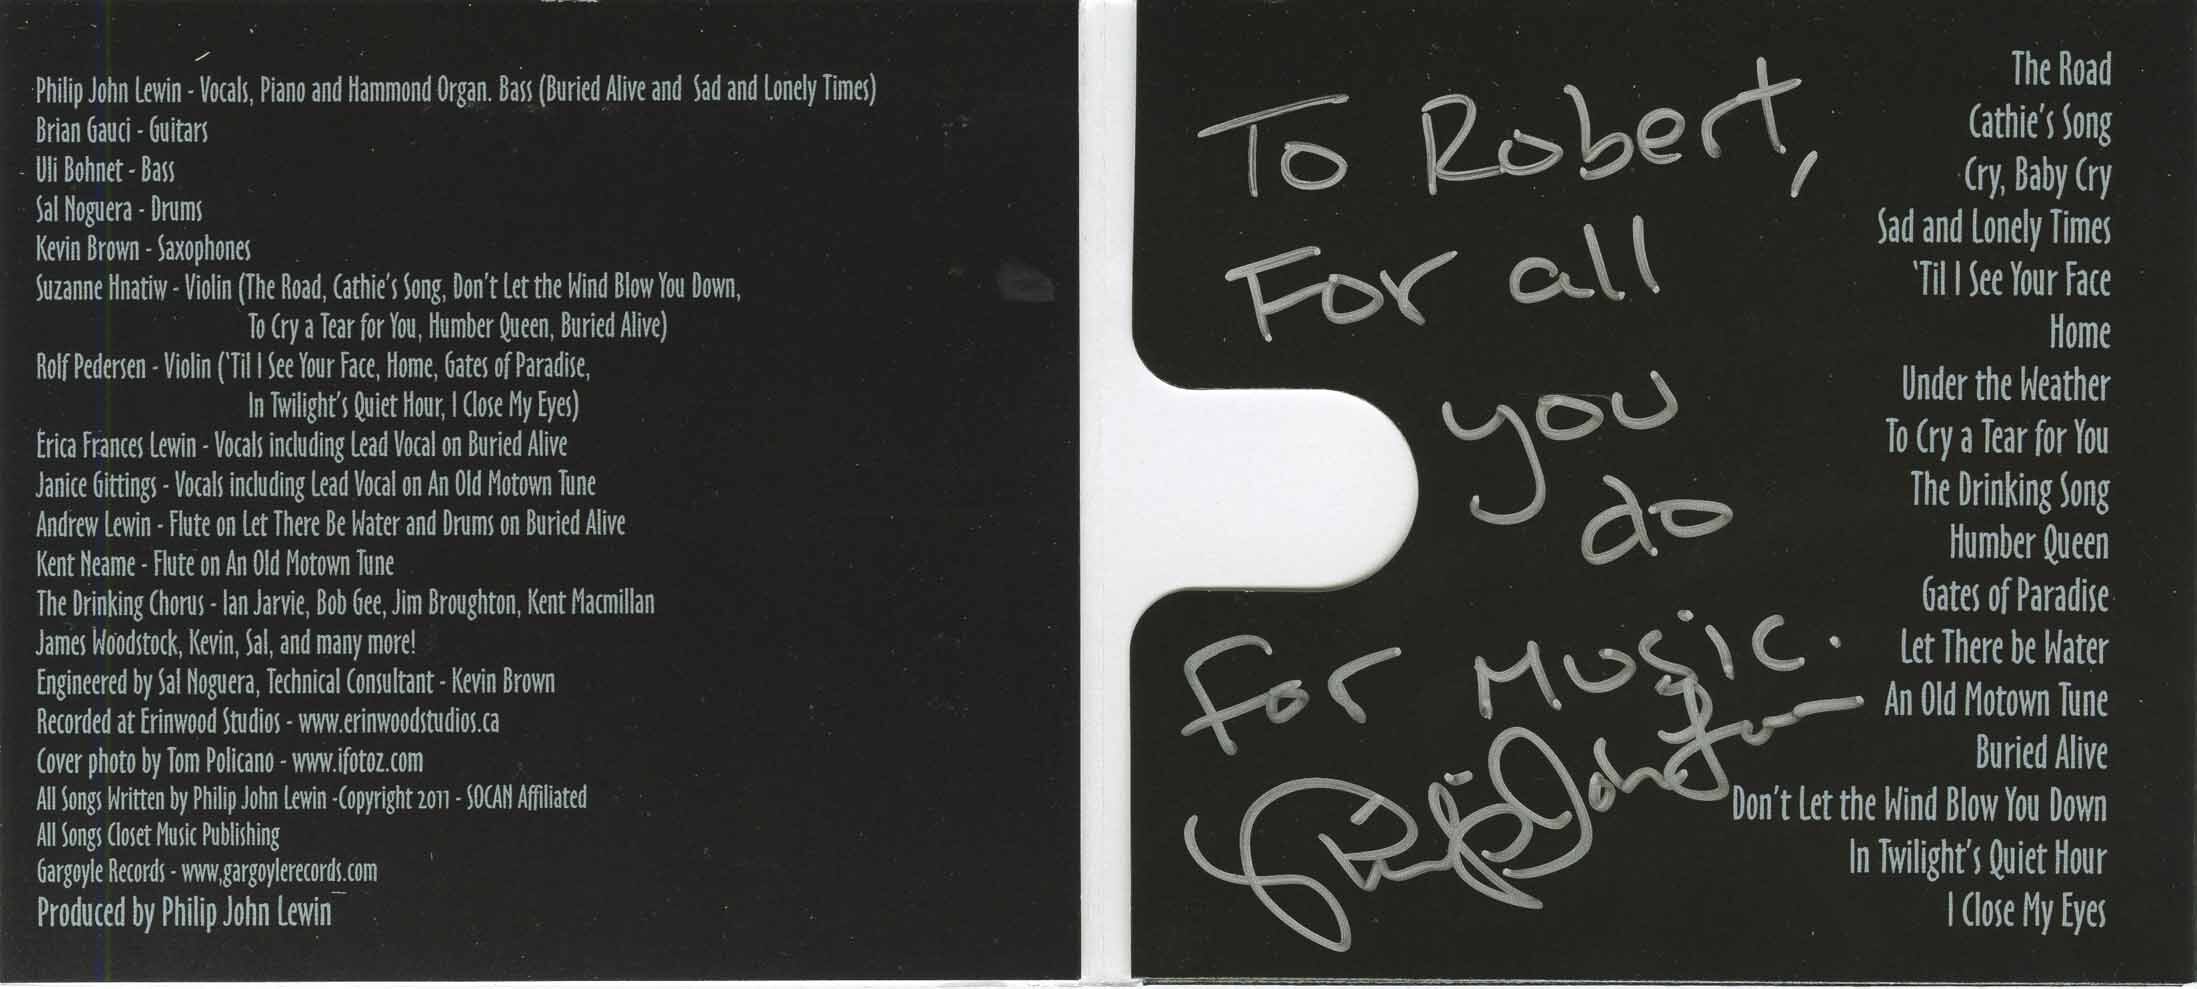 Philip John Lewin - Vocals, Piano and Hammond Organ. Bass (Buried Alive and Sad and Lonely Times)
Brian Gauci - Guitars
Uli Bohnet - Bass
Sal Noguera - Drums
Kevin Brown - Saxophones
Suzanne Hnatiw - Violin (The Road, Cathie's Song, Don't Let the Wind Blow You Down,
To Cry a Tear for You, Humber Queen, Buried Alive)
Rolf Pedersen - Violin ('Til I See Your Face, Home, Gates of Paradise,
In Twilight's Quiet Hour, I Close My Eyes)
Erica Frances Lewin - Vocals including Lead Vocal on Buried Alive
Janice Gittings - Vocals including Lead Vocal on An Old Motown Tune
Andrew Lewin - Flute on Let There Be Water and Drums on Buried Alive
Kent Neame - Flute on An Old Motown Tune
The Drinking Chorus - Ian Jarvie, Bob Gee, Jim Broughton, Kent Macmillan
James Woodstock, Kevin, Sal, and many more!
Engineered by Sal Noguera, Technical Consultant - Kevin Brown
Recorded at Erinwood Studios - www.erinwoodstudios.ca
Cover photo by Tom Policano - www.ifotoz.com
All Songs Written by Philip John Lewin -Copyright 2011 - SOCAN Affiliated
All Songs Closet Music Publishing
Gargoyle Records - www.gargoylerecords.com
Produced by Philip John Lewin
To Robert,
For all
you
do
for music.
Philip John Lewin
The Road
Cathie's Song
Cry, Baby Cry
Sad and Lonely Times
'Til I See Your Face
Home
Under the Weather
To Cry a Tear for You
The Drinking Song
Humber Queen
Gates of Paradise
Let There be Water
An Old Motown Tune
Buried Alive
Don't Let the Wind Blow You Down
In Twilight's Quiet Hour
I Close My Eyes